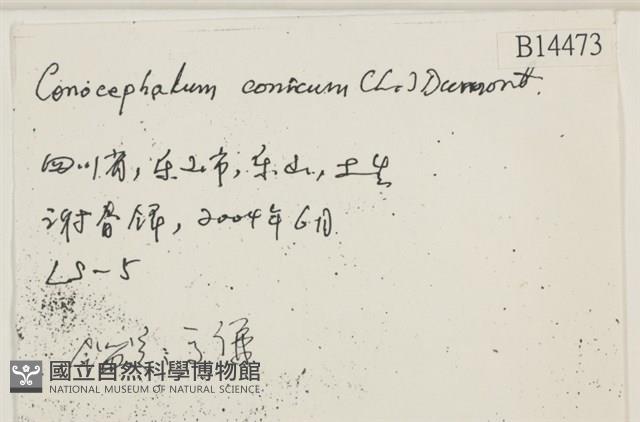 B14473
Conocephalum conicum (L.) Dumort.
四川省, 乐山市, 乐山, 土生
2004年6月
LS-5
國立自然科學博物館
NATIONAL MUSEUM OF NATURAL SCIENCE